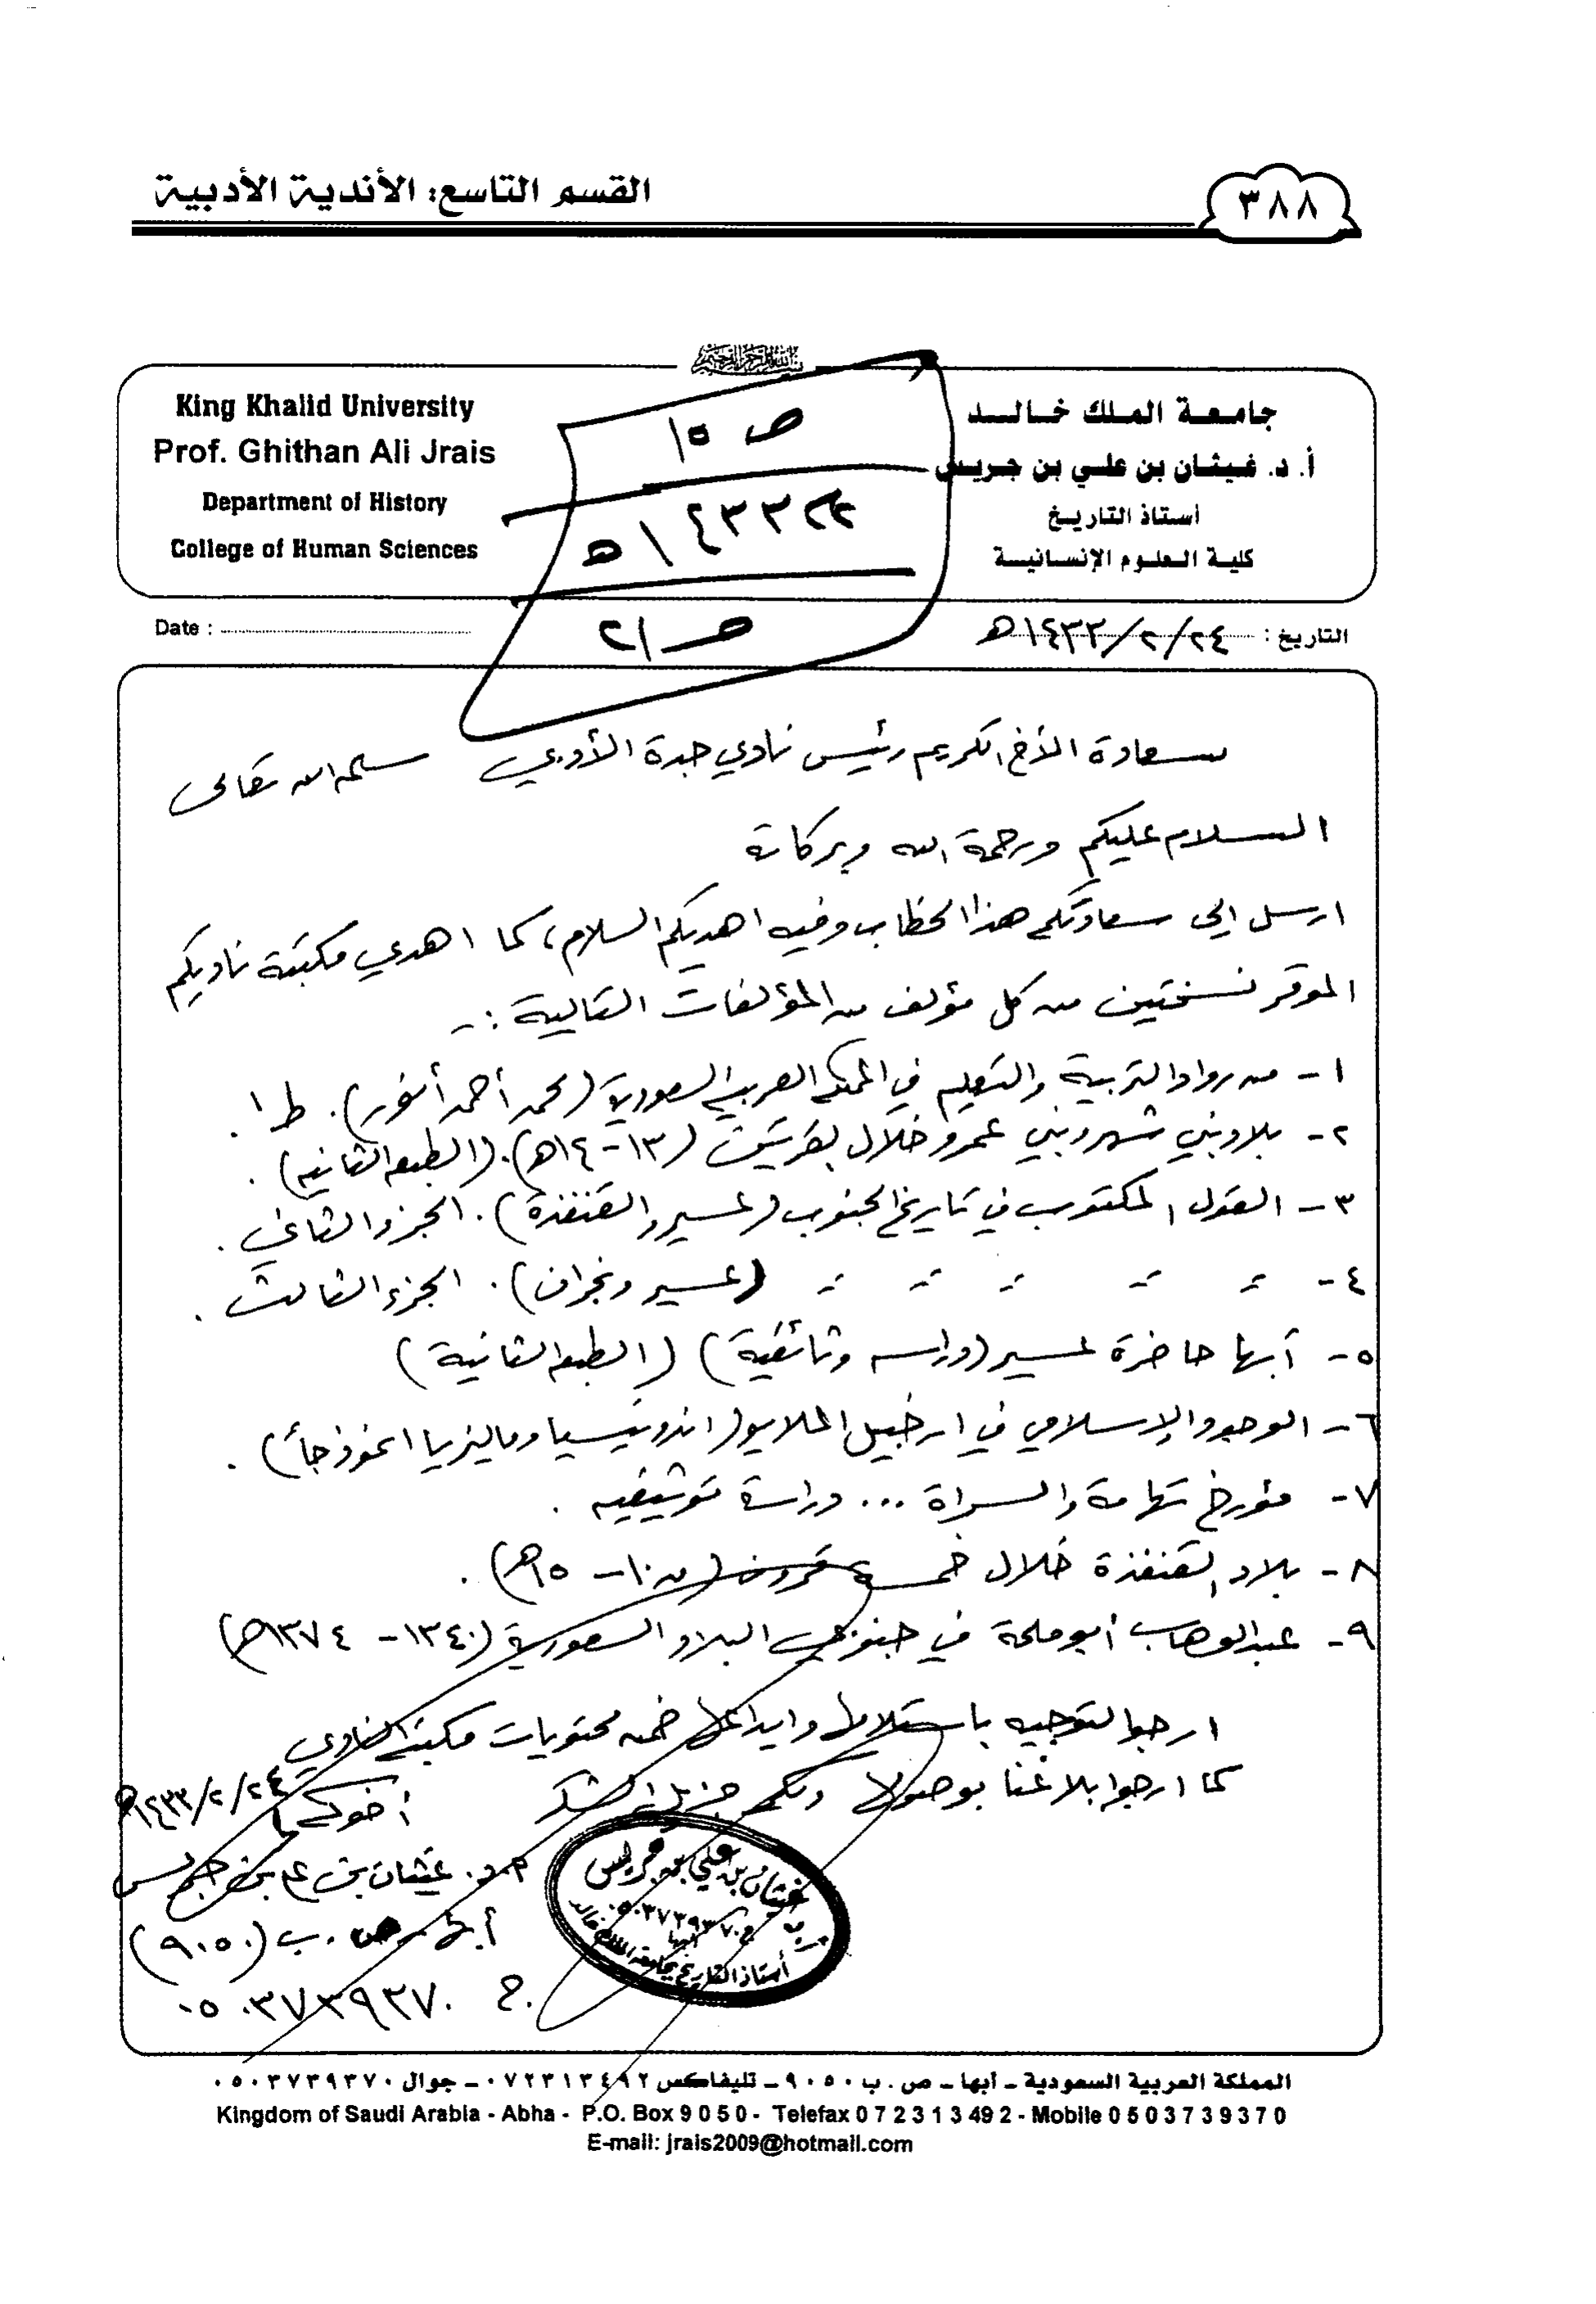 القسم التاسع: الأندية الأدبية
٣٨٨
King Khalid University
Prof. Ghithan Ali Jrais
Department of History
College of Human Sciences
جامعة الملك خالد
أ. د. غيثان بن علي بن جريس
أستاذ التاريخ
كلية العلوم الإنسانية
ص ١٥
١٤٣٣هـ
ص ٢١
Date :
التاريخ : ٢٤/٢/١٤٣٣هـ
سعادة الأخ الكريم رئيس نادي جدة الأدبي سلمه الله تعالى
السلام عليكم ورحمة الله وبركاته
ارسل إلى سعادتكم هذا الخطاب وفيه اهديكم السلام، كما اهدي مكتبة ناديكم
الموقر نسختين من كل مؤلف من المؤلفات التالية :-
١- من رواد التربية والتعليم في المملكة العربية السعودية (محمد أحمد أنور). ط١.
٢- بلاد بني شهر وبني عمرو خلال القرنين (١٣-١٤هـ). (الطبعة الثانية).
٣- القول المكتوب في تاريخ الجنوب (عسير والقنفذة). الجزء الثاني.
٤- = = = = = (عسير ونجران). الجزء الثالث.
٥- أبها حاضرة عسير (دراسة وثائقية) (الطبعة الثانية)
٦- الوجود الإسلامي في ارخبيل الملايو (اندونيسيا وماليزيا انموذجاً).
٧- مؤرخ تهامة والسراة ... دراسة توثيقيه.
٨- بلاد القنفذة خلال خمسة قرون (ق١٠-١٥هـ).
٩- عبدالوهاب أبو ملحة في جنوبي البلاد السعودية (١٣٤٠-١٣٧٤هـ)
ارجوا التوجيه باستلامها وايداعها ضمن محتويات مكتبة النادي
كما ارجوا بلاغنا بوصولها ولكم جزيل الشكر
أخوكم ٢٤/٢/١٤٣٣هـ
أ.د. غيثان بن علي بن جريس
أبها - ص . ب (٩٠٥٠)
ج. ٠٥٠٣٧٣٩٣٧٠
غيثان بن علي بن جريس
ج/ ٠٥٠٣٧٣٩٣٧٠
أبها
أستاذ التاريخ بجامعة الملك خالد
المملكة العربية السعودية - أبها - ص . ب ٩٠٥٠ - تليفاكس ٠٧٢٣١٣٤٩٢ - جوال ٠٥٠٣٧٣٩٣٧٠
Kingdom of Saudi Arabia - Abha - P.O. Box 9 0 5 0 - Telefax 0 7 2 3 1 3 49 2 - Mobile 0 5 0 3 7 3 9 3 7 0
E-mail: jrais2009@hotmail.com